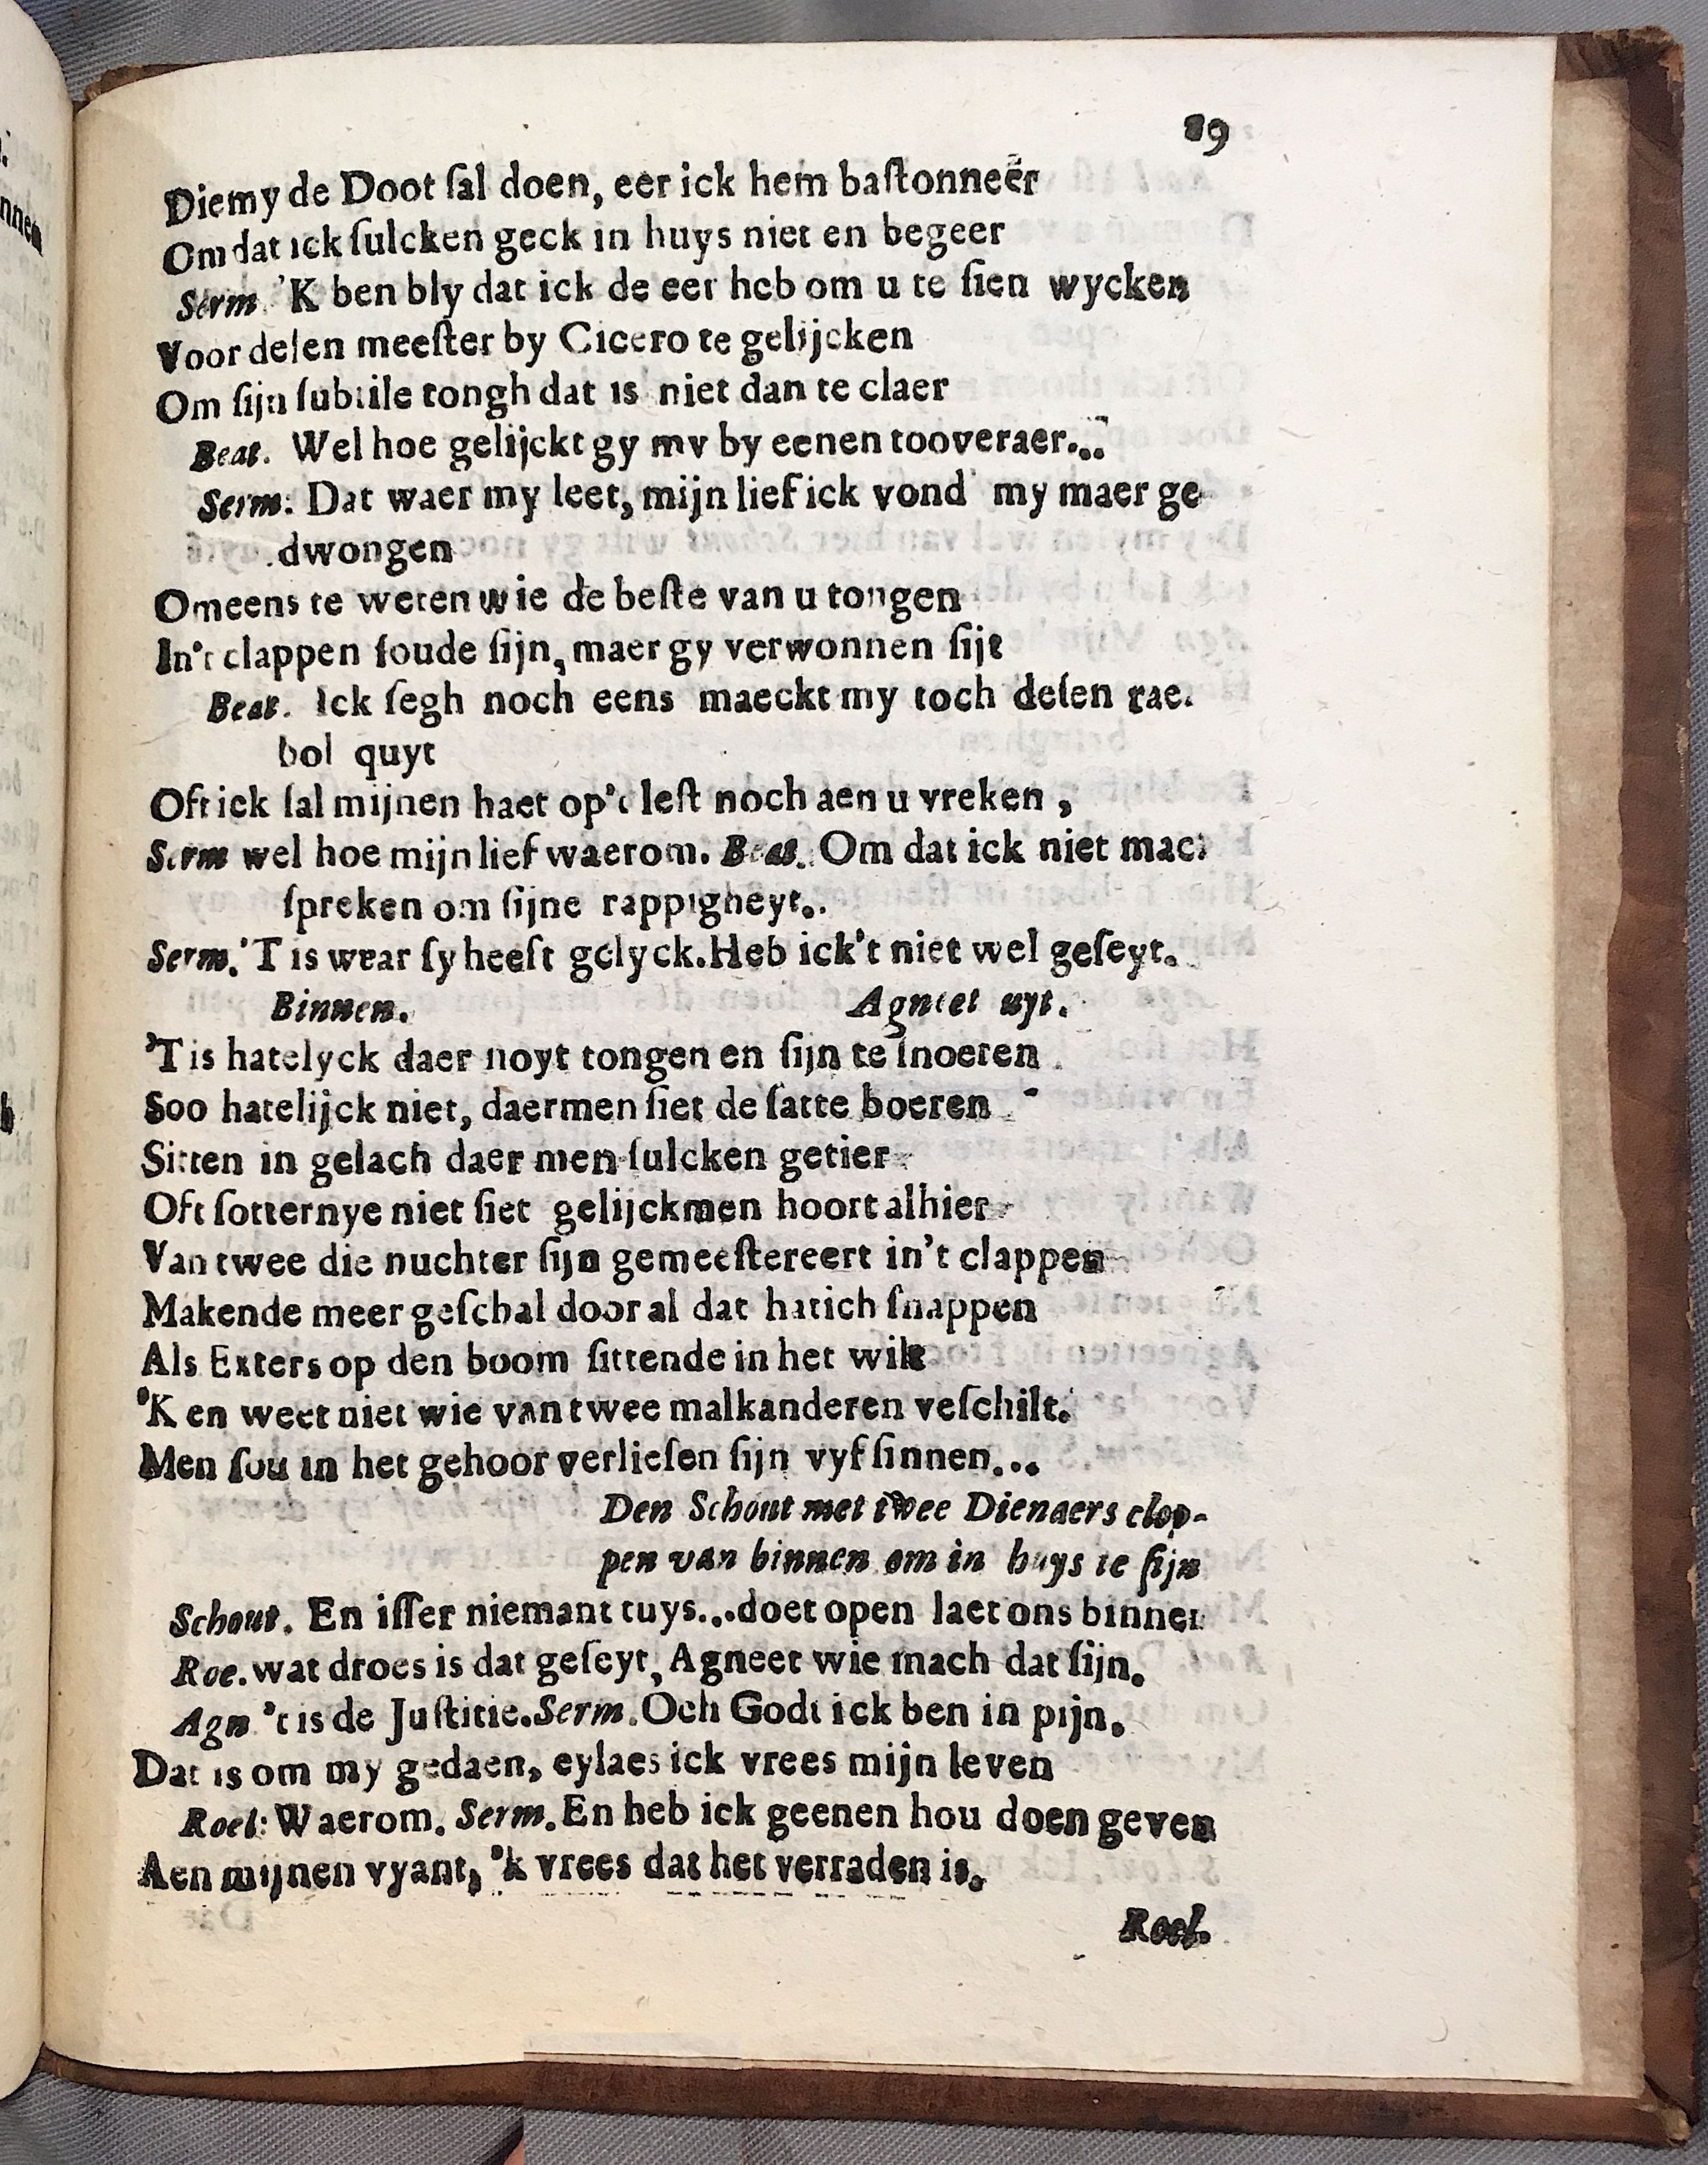 19
Diemy de Doot ſal doen, eer ick hem baſtonneër
Om dat ick ſulcken geck in huys niet en begeer
Serm 'K ben bly dat ick de eer heb om u te ſien wycken
Voor deſen meeſter by Cicero te gelijcken
Om ſijn ſubtile tongh dat is niet dan te claer
Beat. Wel hoe gelijckt gy my by eenen tooveraer...
Serm: Dat waer my leet, mijn lief ick vond my maer ge
dwongen
Omeens te weten wie de beſte van u tongen
In't clappen ſoude ſijn, maer gy verwonnen ſijt
Beat. Ick ſegh noch eens maeckt my toch deſen rae.
bol quyt
Oft ick ſal mijnen haet op't leſt noch aen u vreken ,
Serm wel hoe mijn lief waerom. Beat. Om dat ick niet mach
ſpreken om ſijne rappigheyt..
Serm. 'T is wear ſy heeft gelyck. Heb ick't niet wel geſeyt.
Binnen. Agneet uyt.
'T is hatelyck daer noyt tongen en ſijn te ſnoeren
Soo hatelijck niet, daermen ſiet de ſatte boeren
Sitten in gelach daer men ſulcken getier
Oft ſotternye niet ſiet gelijckmen hoort alhier
Van twee die nuchter ſijn gemeeſtereert in't clappen
Makende meer geſchal door al dat hatich ſnappen
Als Exters op den boom ſittende in het wilt
'K en weet niet wie van twee malkanderen veſchilt.
Men ſou in het gehoor verlieſen ſijn vyf ſinnen...
Den Schout met twee Dienaers clop-
pen van binnen om in huys te ſijn
Schout. En iſſer niemant tuys...doet open laet ons binnen
Roe. wat droes is dat geſeyt, Agneet wie mach dat ſijn.
Agn 't is de Juſtitie. Serm. Och Godt ick ben in pijn.
Dat is om my gedaen, eylaes ick vrees mijn leven
Roel: Waerom. Serm. En heb ick geenen hou doen geven
Aen mijnen vyant, 'k vrees dat het verraden is.
Roel.